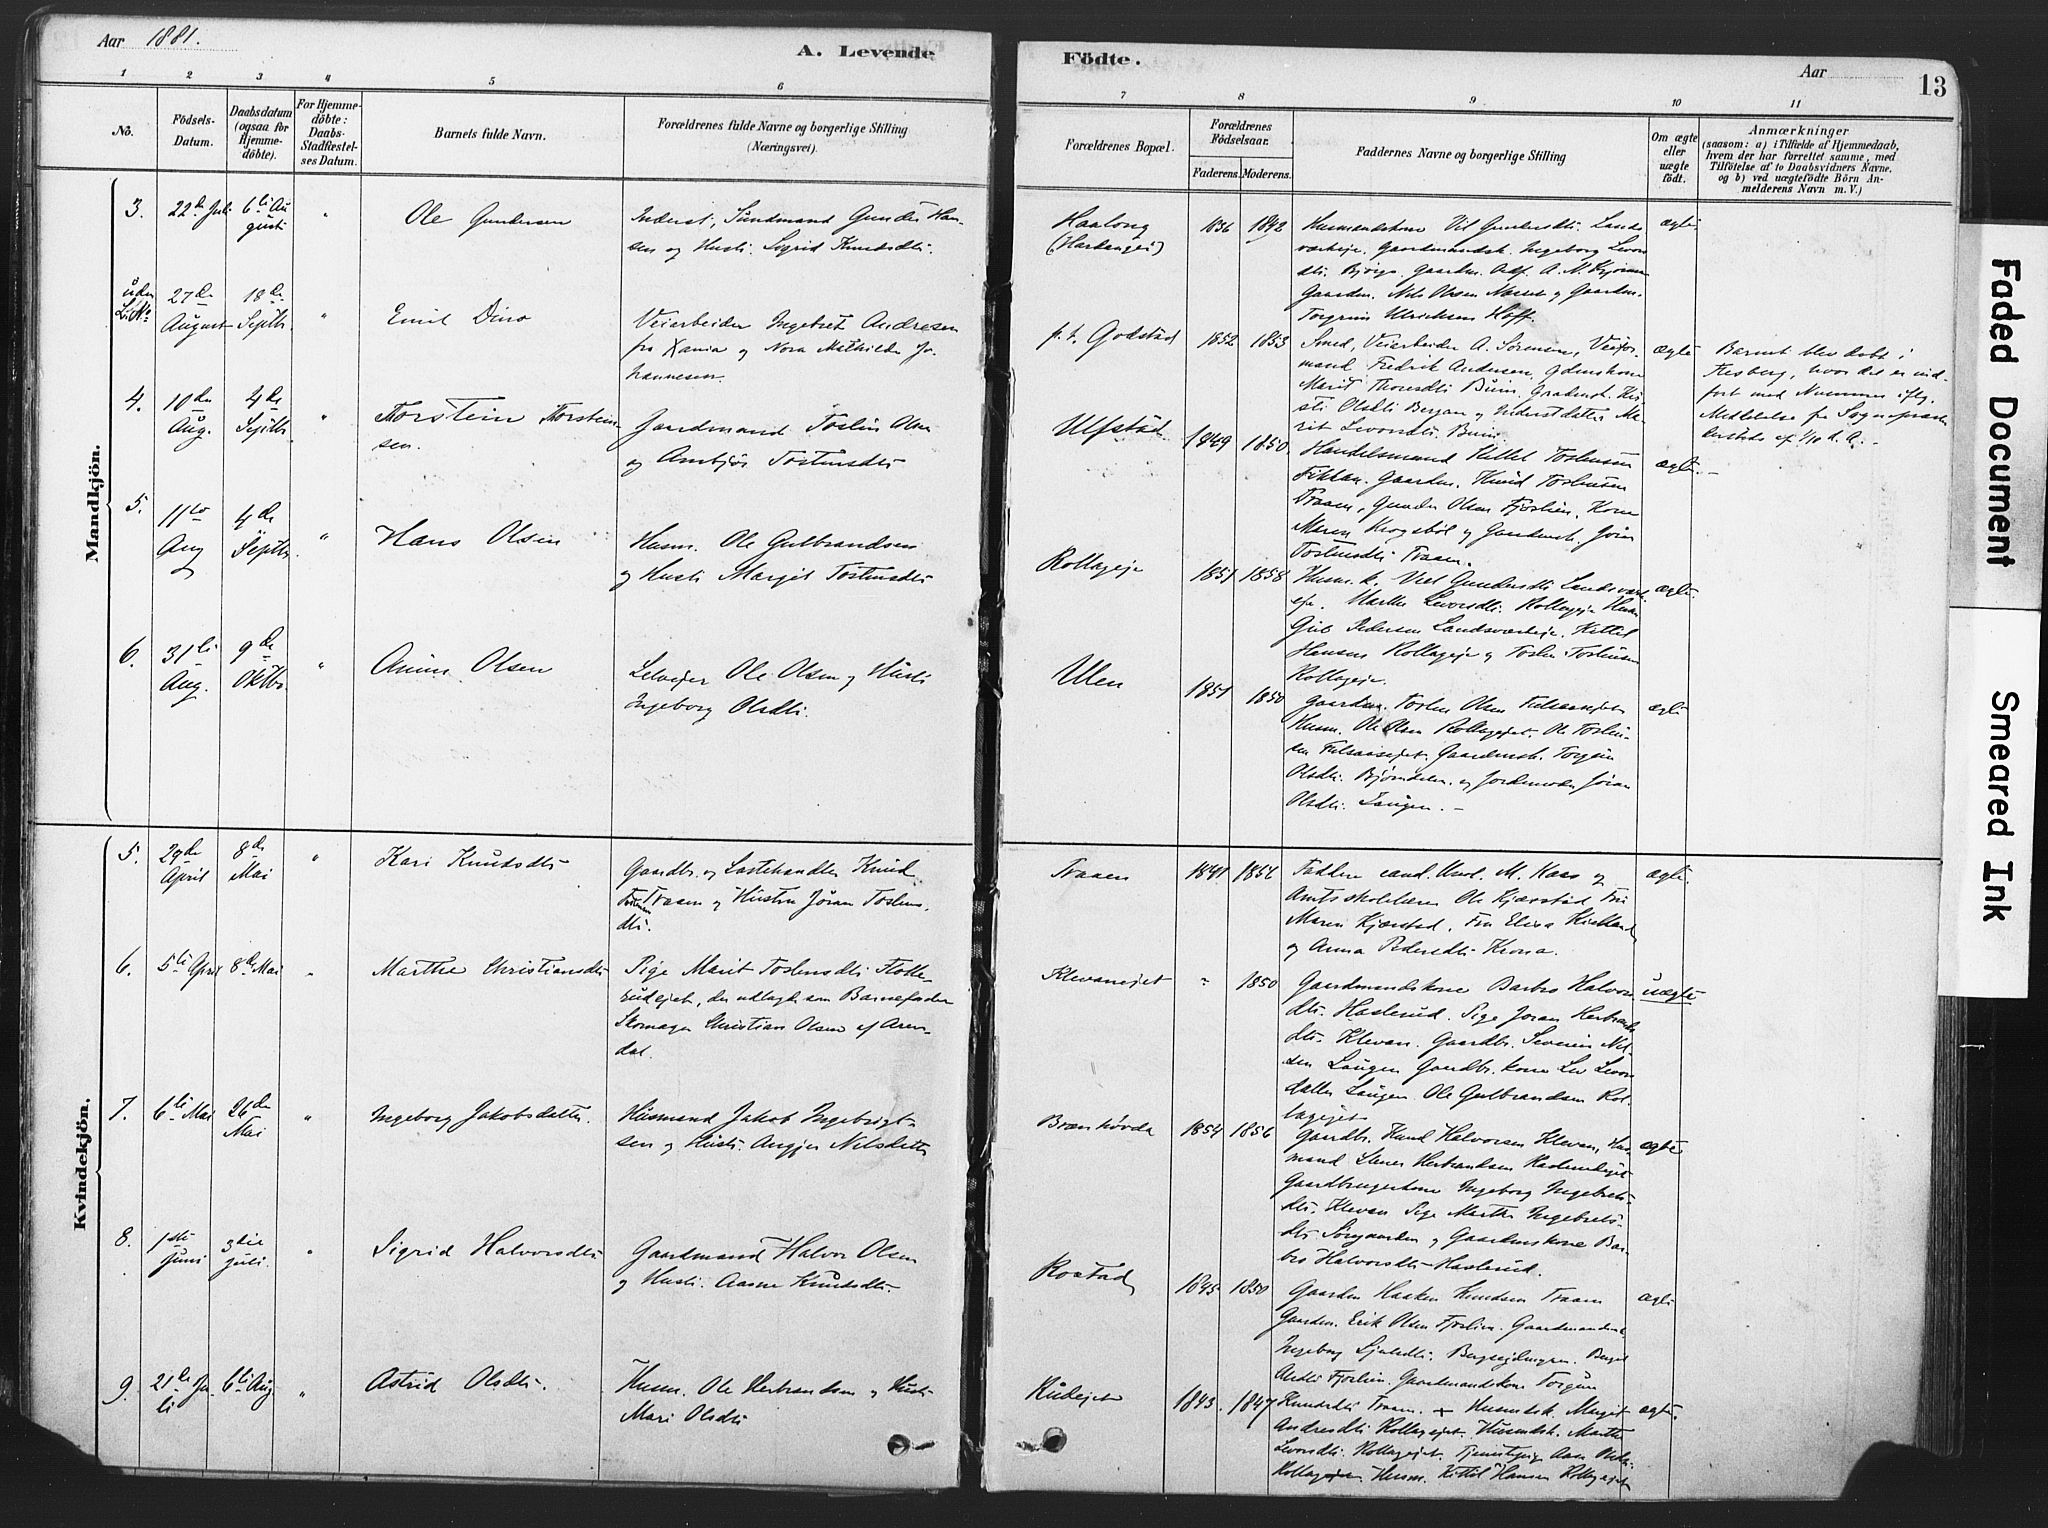 Aar 1881.
A. Levende
Födte.
Aar
13
1
2
3
4
5
6
7
8
9
10
11
No.
Födsels-
Datum.
Daabsdatum
(ogsaa for
Hjemme-
döbte).
For Hjemme-
döbte:
Daabs-
Stadfæstel-
ses Datum.
Barnets fulde Navn.
Forældrenes fulde Navne og borgerlige Stilling
(Næringsvei).
Forældrenes Bopæl.
Forældrenes
Födselsaar.
Faderens.
Moderens.
Faddernes Navne og borgerlige Stilling
Om ægte
eller
uægte
født.
Anmærkninger
(saasom: a) i Tilfælde af Hjemmedaab,
hvem der har forrettet samme, med
Tilföielse af to Daabsvidners Navne,
og b) ved uægtefödte Börn An-
melderens Navn m. V.)
Mandkjön.
3.
22de Juli
6te Au
gusti
"
Ole Gundersen
Inderst, Sundmand Gunder Han-
sen og Hustr. Sigrid Knudsdtr.
Haalong
(Hardanger)
1836
1842
Husmandskone Vil Gundersdtr. Lands
værkeje. Gaardmandsk. Ingeborg Levor
dtr. Bjørge. Gaardm. Adf. A. M.
Gaardm. Nils Olsen og Gaardm.
Torgrim Ulricksen Hoff.
ægte
uden
No
27de
August
18de
Septbr.
"
Emil Dino
Veiarbeider Ingebret Andresen
fra Xania og Nora Mathilde Jo-
hannesen.
p.t. Godstad
1852
1853
Smed, Veiarbeider A. Sørensen, Veifor-
mand Fredrik Andersen,
Marit Thoresdtr. Buin,
sti Olsdtr. Bergan og Inderstdatter Ma-
rit Levorsdtr. Buin
ægte
Barnet blev døbt i
Flesberg, hvor det er ind-
ført med Nummer iflg.
Meddelelse fra Sogneprest
af 1/10 d. A. -
4.
10de
Aug.
4de
Septbr.
"
Thorstein Thorstein
sen.
Gaardmand Tosten Olsen
og Ambjør Tostensdtr.
Ulfstad
1849
1850.
Handelsmand Kittel Tostensen
Fikkan. Gaardm. Knud Tostensen
Traaen, Gunder Olsen Fjøslien, Kone
Maren Krogsbøl og Gaardmsk. Jøran
Tostensdtr. Traaen.
ægte.
5.
11te
Aug
4de
Septbr.
"
Hans Olsen
Husm. Ole Gulbrandsen
og Hustr. Margit Tostensdtr.
Rollageje
1851
1858
Husm.k. Vil Gundersdtr. Landsværk-
eje. Marthe Levorsdtr. Rollageje
Gul. Pedersen Landsværkeje. Kittil
Hansen Rollageje og Tosten Tostensen
Rollageje.
ægte.
6.
31te
Aug.
9de
Oktbr.
"
Anim Olsen
Selveier Ole Olsen og Hustr.
Ingeborg Olsdtr.
Ulen
1851
1850
Gaardm. Tosten Olsen
Husm. Ole Olsen Rollagejet. Ole Tosten-
sen Gaardmsk. Torgun
Olsdtr. Bjørndalen og Jordemoder Jøran
Olsdtr. Laugen. -
ægte
Kvindekjön.
5.
29de
April
8de
Mai
"
Kari Knudsdtr
Gaardbr. og Lastehandler Knud
Tostensen Traaen og Hustru Jøran Tostens.
dtr.
Traaen
1841
1856
Faddere cand. theol. M. Kaas og
Amtsskolelærer Ole Kjærstad Fru
Maren Kjærstad. Fru Elisa Kielland
og Anna Pedersdtr. Krona.
ægte.
6.
5te April
8de Mai
"
Marthe Christiansdtr
Pige Marit Tostensdtr. Flotte-
rudejet, der udlagde som Barnefader
Skomager Christian Olsen af Aren-
dal.
Klevanejet
"
1850
Gaardmandskone Barbro Halvors
dtr. Haslerud. Pige Joran Herbrands
dtr. Klevan. Gaardbr. Severin Nil-
sen Laugen Gaardbr.kone Liv Levors
datter Laugen. Ole Gulbrandsen Rol-
lagejet
uægte
7.
6te Mai
26de
Mai
"
Ingeborg Jakobsdatter.
Husmand Jakob Ingebrigt-
sen og Hustr. Angjer Nilsdatter
Brænhövda
1854
1856
Gaardbr. Knud Halvorsen Klevan, Hus-
mand Herbrandsen Haslerudejet
Gaardbrugerkone Ingeborg Ingebrets-
dtr. Klevan Pige Marthe Ingebrets-
dtr. Sörgaarden og Gaardmskone Bar-
bro Halvorsdtr. Haslerud.
ægte
8.
1ste
Juni
3die
Juli.
"
Sigrid Halvorsdtr.
Gaardmand Halvor Olsen
og Hustr. Aasne Knudsdtr.
Rostad
1845
1850
Gaardm Haaken Knudsen Traaen
Gaardm. Erik Olsen Fjøslien. Gaardmandsk.
Ingeborg Bergsejdungen. Berget
Fjøslien. Gaardmandskone Torgun
Knudsdtr. Traaen.
ægte
9.
21de Ju-
li
6te Aug
"
Astrid Olsdtr.
Husm. Ole Herbrandsen og Hustr.
Mari Olsdtr.
Rudejet
1843.
1847
+ Husmdsk. Margit
Andresdtr. Rollagejet. Husmdsk. Marthe
Levorsdtr. Rollagejet. Tjenestepige
Rollagejet. Husm. Kittil Hansen Rollagejet
ægte.
Faded Document
Smeared Ink